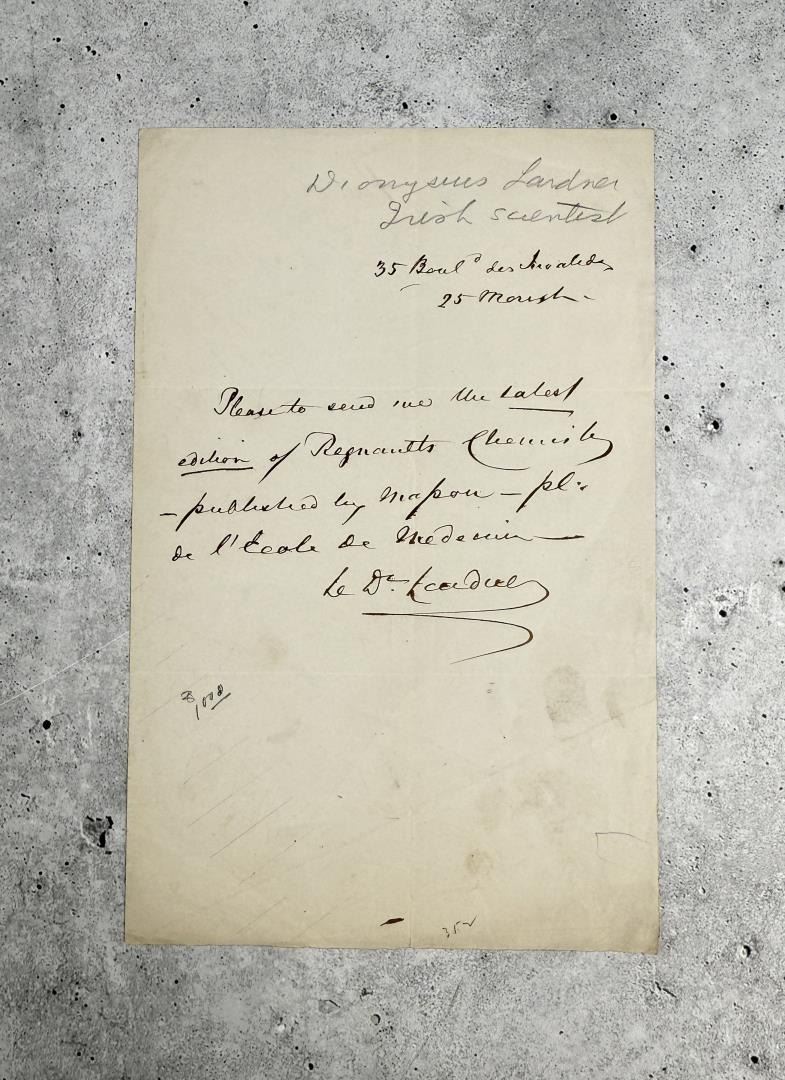 Dionysius Lardner
Irish scientist
35 Boul^d des Invalides
25 March -
Please to send me the latest
edition of Regnaults Chemistry
- published by Masson - pl:
de l'Ecole de Medecin —
Le Dr. Lardner
35-